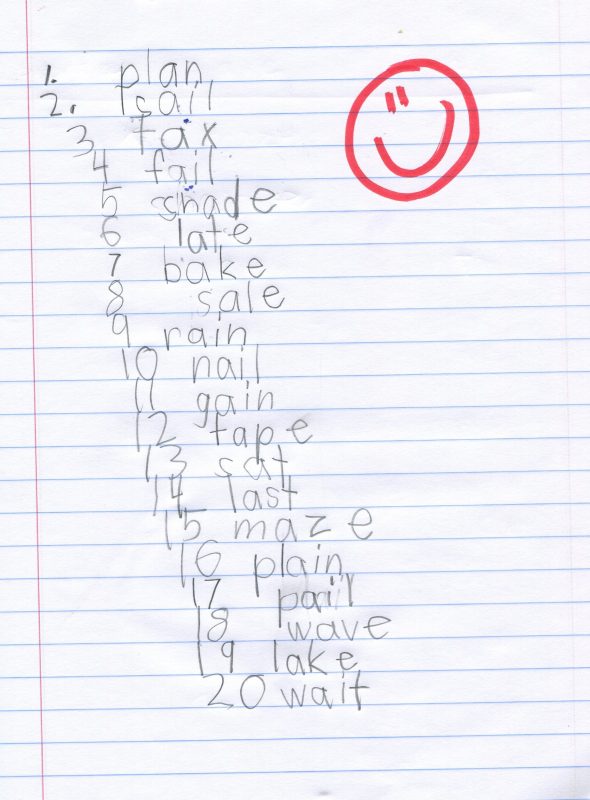 1. plan
2. sail
3 tax
4 fail
5 shade
6 late
7 bake
8 sale
9 rain
10 nail
11 gain
12 tape
13 sat
14 last
15 maze
16 plain
17 pail
18 wave
19 lake
20 wait